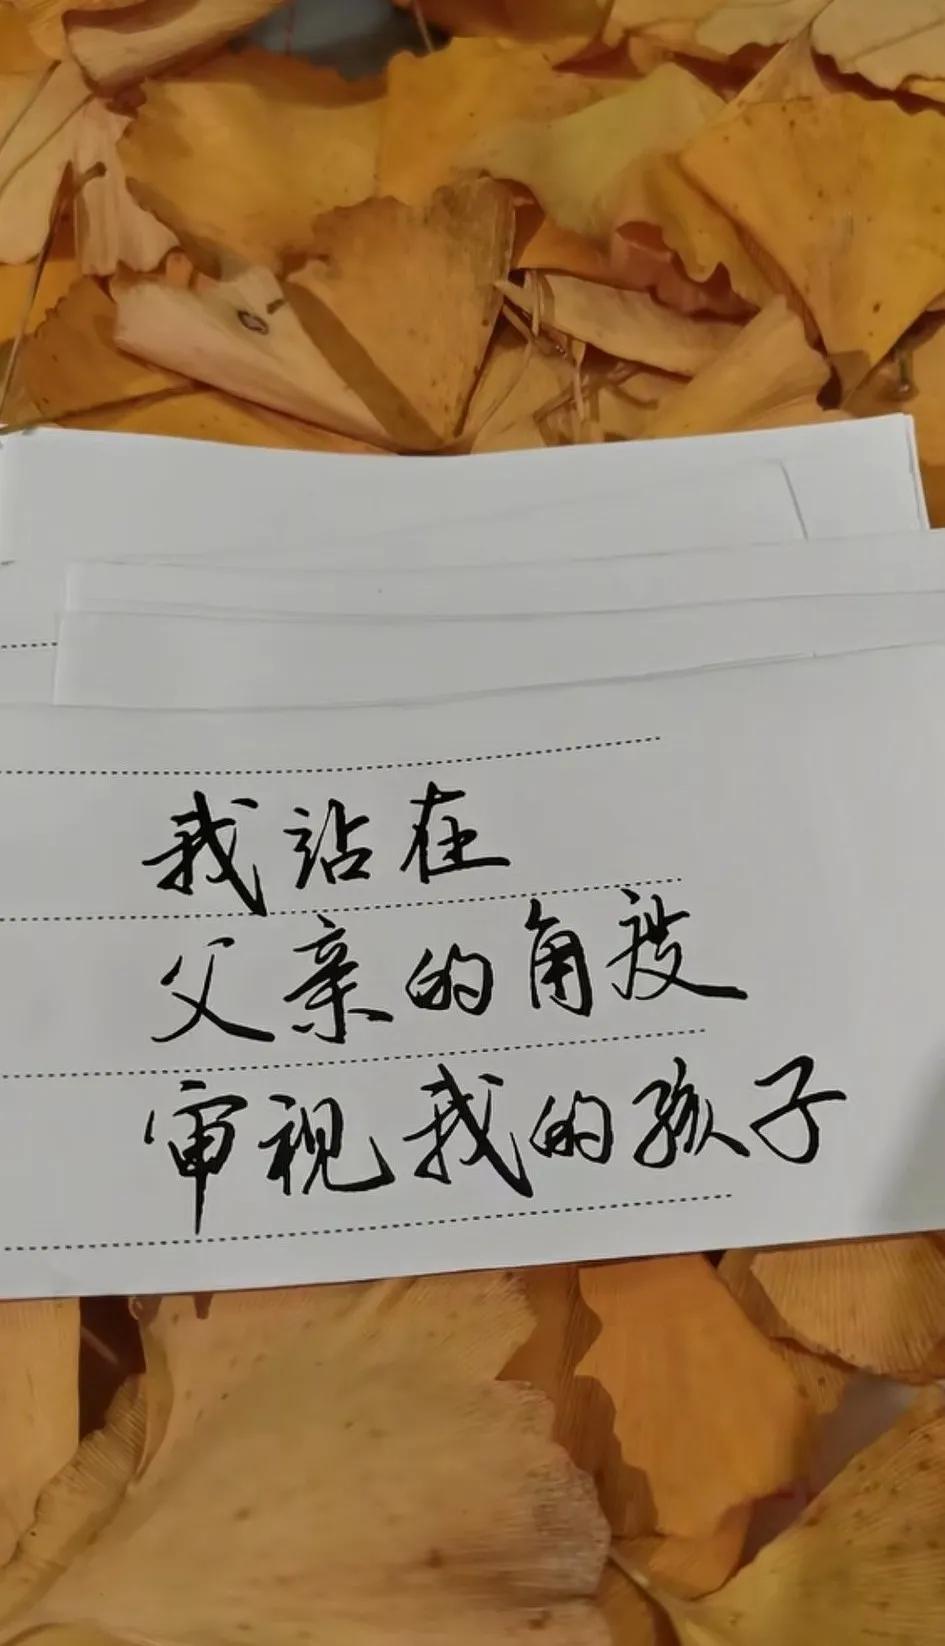 我站在
父亲的角度
审视我的孩子